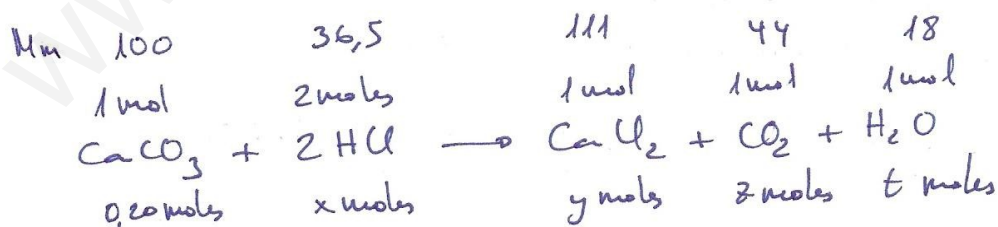 Mm 100 36,5 111 44 18
1 mol 2 moles 1 mol 1 mol 1 mol
CaCO₃ + 2 HCl → CaCl₂ + CO₂ + H₂O
0,20 moles x moles y moles z moles t moles